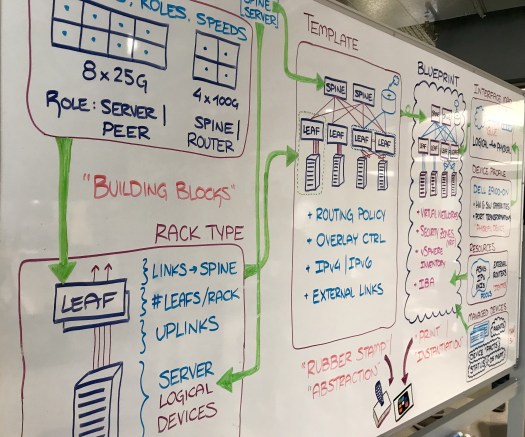 , ROLES, SPEEDS
8 x 25G
ROLE: SERVER |
PEER
4 x 100G
SPINE |
ROUTER
SPINE
[SERVER]
"BUILDING BLOCKS"
RACK TYPE
LEAF
LINKS → SPINE
#LEAFS/RACK
UPLINKS
SERVER
LOGICAL
DEVICES
TEMPLATE
SPINE SPINE
LEAF LEAF LEAF LEAF
+ ROUTING POLICY
+ OVERLAY CTRL
+ IPv4 | IPv6
+ EXTERNAL LINKS
"RUBBER STAMP"
"ABSTRACTION"
BLUEPRINT
+ VIRTUAL NETWORKS
+ SECURITY ZONES
+ VSPHERE
INVENTORY
+ IBA
"PRINT
"INSTANTIATION"
INTERFACE
LOGICAL
DEVICE PROFILE
DELL
RESOURCES
ASNS
IPS
POOLS
EXTERNAL
ROUTERS
MANAGED DEVICES
AGENTS
DEVICE
STATUS